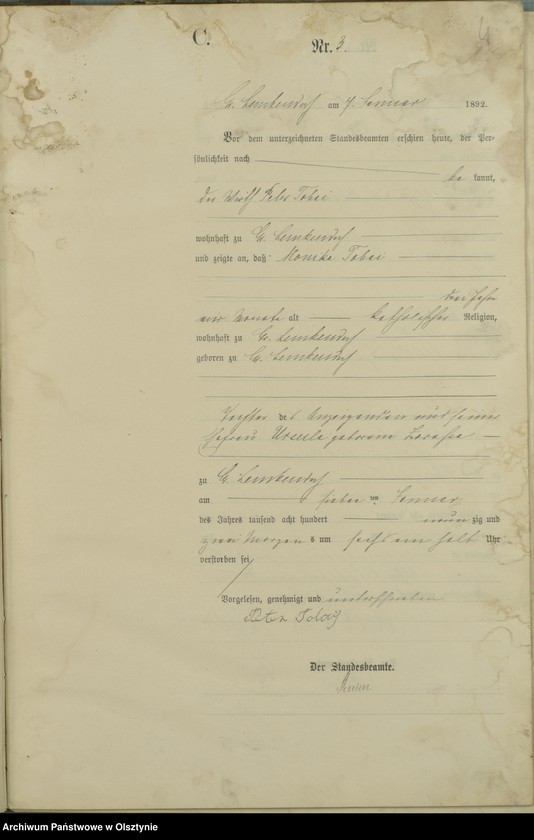 C.
Nr. 3.
Gr. Lemkendorf am 7. Januar 1892.
Vor dem unterzeichneten Standesbeamten erschien heute, der Per-
sönlichkeit nach
be kannt,
der Wirth Peter Tobai
wohnhaft zu Gr. Lemkendorf
und zeigte an, daß Monika Tobai
drei Jahre
Monate alt katholischer Religion,
wohnhaft zu Gr. Lemkendorf
geboren zu Gr. Lemkendorf
Tochter des Anzeigenden und seiner
Ehefrau Ursula geborene
zu Gr. Lemkendorf
am sieben ten Januar
des Jahres tausend acht hundert neun zig und
zwei Morgen s um sechs ein halb Uhr
verstorben sei
Vorgelesen, genehmigt und unterschrieben
Peter
Der Standesbeamte.
Archiwum Państwowe w Olsztynie